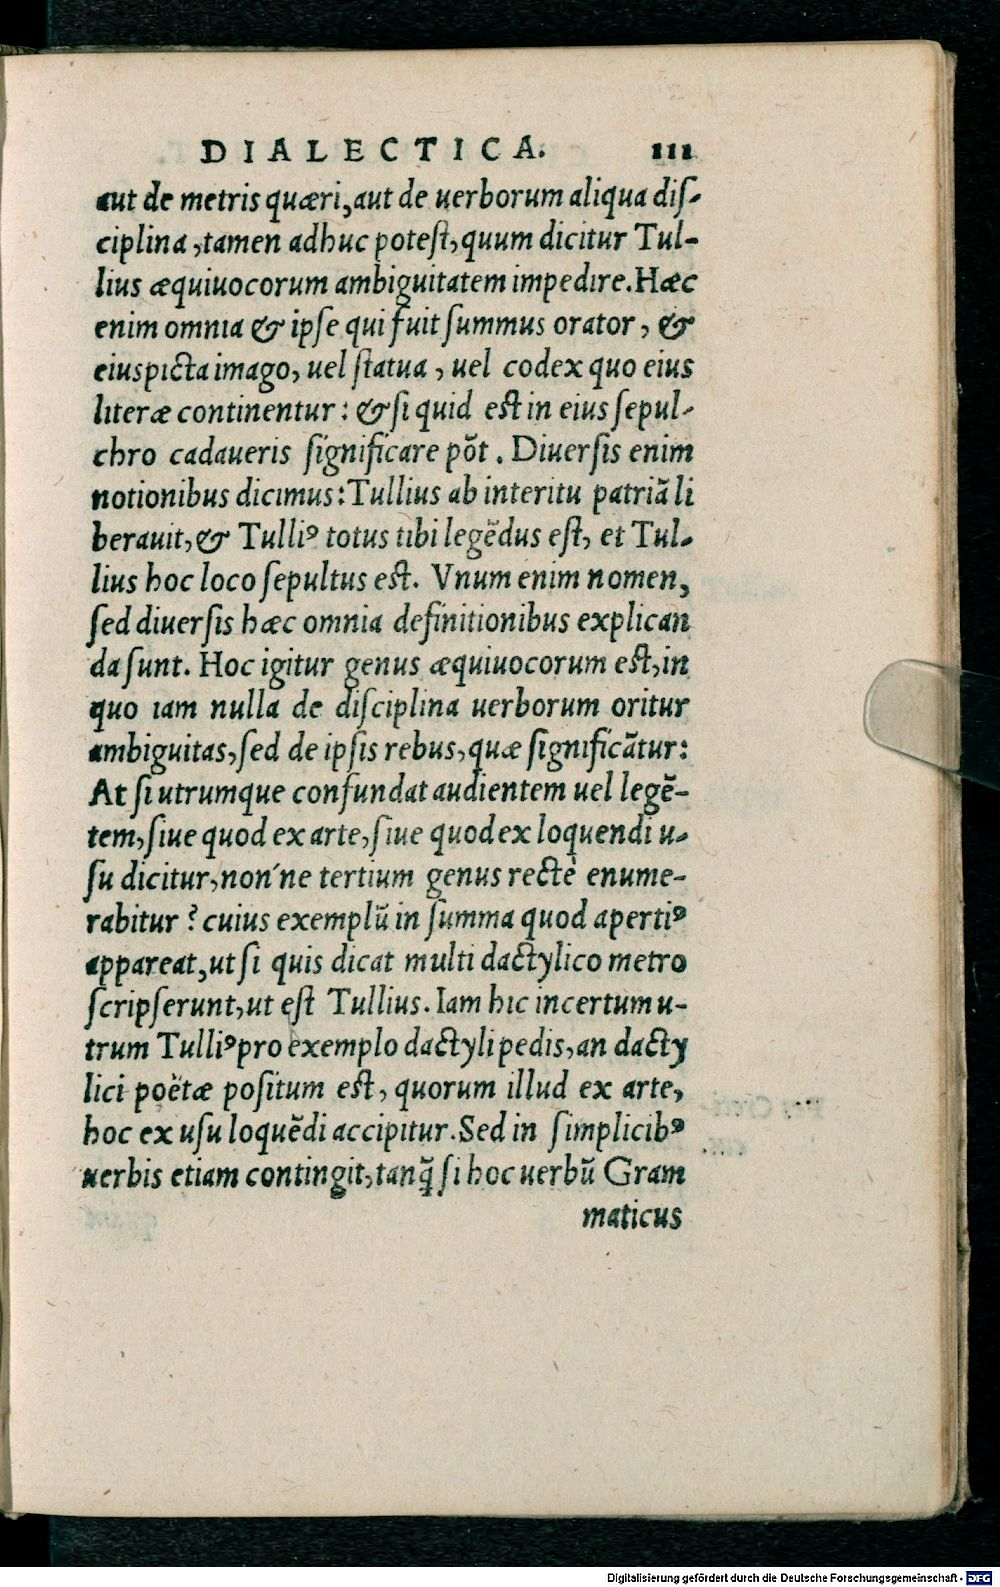 DIALECTICA. III
aut de metris quæri, aut de uerborum aliqua disciplina, tamen adhuc potest, quum dicitur Tul-
lius æquiuocorum ambiguitatem impedire. Hæc
enim omnia & ipse qui fuit summus orator, &
eius picta imago, uel statua, uel codex quo eius
literæ continentur: & si quid est in eius sepul-
chro cadaueris significare põt. Diuersis enim
notionibus dicimus: Tullius ab interitu patriã li
berauit, & Tulliꝰ totus tibi legẽdus est, et Tul-
lius hoc loco sepultus est. Vnum enim nomen,
sed diuersis hæc omnia definitionibus explican
da sunt. Hoc igitur genus æquiuocorum est, in
quo iam nulla de disciplina uerborum oritur
ambiguitas, sed de ipsis rebus, quæ significãtur:
At si utrumque confundat audientem uel legẽ-
tem, siue quod ex arte, siue quod ex loquendi u-
su dicitur, non´ne tertium genus rectè enume-
rabitur? cuius exemplũ in summa quod apertiꝰ
appareat, ut si quis dicat multi dactylico metro
scripserunt, ut est Tullius. Iam hic incertum u-
trum Tulliꝰ pro exemplo dactyli pedis, an dacty
lici poëtæ positum est, quorum illud ex arte,
hoc ex usu loquẽdi accipitur. Sed in simplicibꝰ
uerbis etiam contingit, tanq̃ si hoc uerbũ Gram
maticus
Digitalisierung gefördert durch die Deutsche Forschungsgemeinschaft - DFG